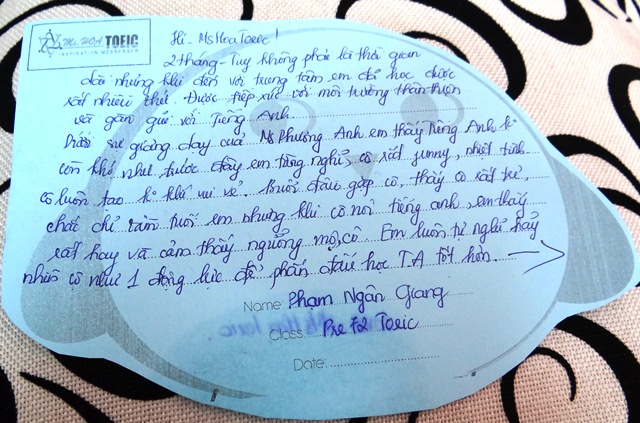 Ms. HOA TOEIC
INSPIRATION MESSENGER
Hi - Ms Hoa Toeic!
2 tháng - Tuy không phải là thời gian
dài nhưng khi đến với trung tâm em đã học được
rất nhiều thứ. Được tiếp xúc với môi trường thân thiện
và gần gũi với Tiếng Anh
Dưới sự giảng dạy của Ms Phương Anh em thấy Tiếng Anh k
còn khó như trước đây em từng nghĩ, cô rất funny, nhiệt tình
cô luôn tạo k khí vui vẻ. Buổi đầu gặp cô, thấy cô rất trẻ,
chắc chỉ tầm tuổi em nhưng khi cô nói tiếng anh, em thấy
rất hay và cảm thấy ngưỡng mộ cô. Em luôn tự nghĩ hãy
nhìn cô như 1 động lực để phấn đấu học T.A tốt hơn.
Name: Phạm Ngân Giang
Class: Pre F2 Toeic
Date: